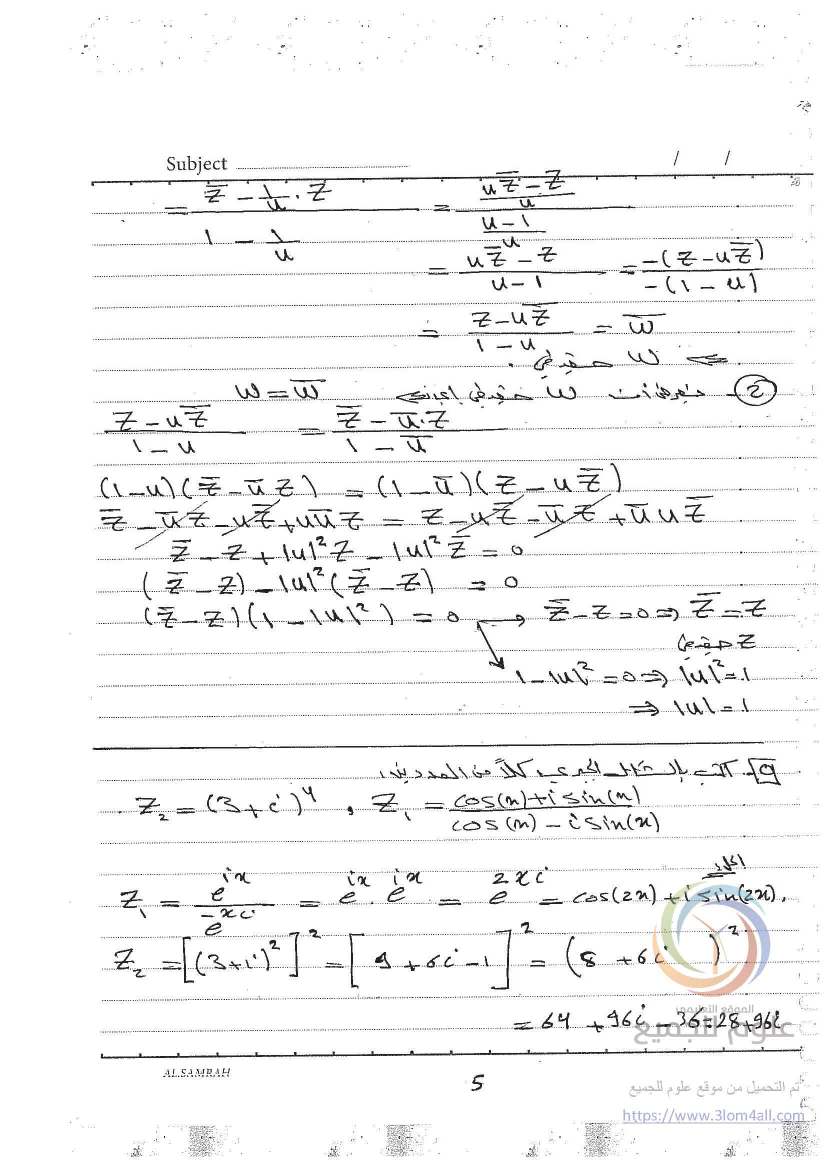 Subject / /
= (z̅ - 1/u . z) / (1 - 1/u) = ((u z̅ - z)/u) / ((u-1)/u)
= (u z̅ - z) / (u-1) = -(z - u z̅) / -(1-u)
= (z - u z̅) / (1-u) = w̅
⇐ w حقيقي .
2 - نفرض أن w حقيقي ⇐ w = w̅
(z - u z̅) / (1-u) = (z̅ - u̅.z) / (1 - u̅)
(1-u)(z̅ - u̅ z) = (1-u̅)(z - u z̅)
z̅ - u̅ z - u z̅ + u u̅ z = z - u z̅ - u̅ z + u̅ u z̅
z̅ - z + |u|² z - |u|² z̅ = 0
(z̅ - z) - |u|² (z̅ - z) = 0
(z̅ - z)(1 - |u|²) = 0 → z̅ - z = 0 ⇒ z̅ = z
z حقيقي
1 - |u|² = 0 ⇒ |u|² = 1
⇒ |u| = 1
9 - اكتب بالشكل الجبري كلاً من العددين:
Z₂ = (3+i)⁴ , Z₁ = (cos(x) + i sin(x)) / (cos(x) - i sin(x))
الحل:
Z₁ = e^{ix} / e^{-xi} = e^{ix} . e^{ix} = e^{2xi} = cos(2x) + i sin(2x).
Z₂ = [(3+i)²]² = [9 + 6i - 1]² = (8 + 6i)²
= 64 + 96i - 36 = 28 + 96i
الموقع التعليمي
علوم للجميع
AL.SAMRAH
5
تم التحميل من موقع علوم للجميع
https://www.3lom4all.com